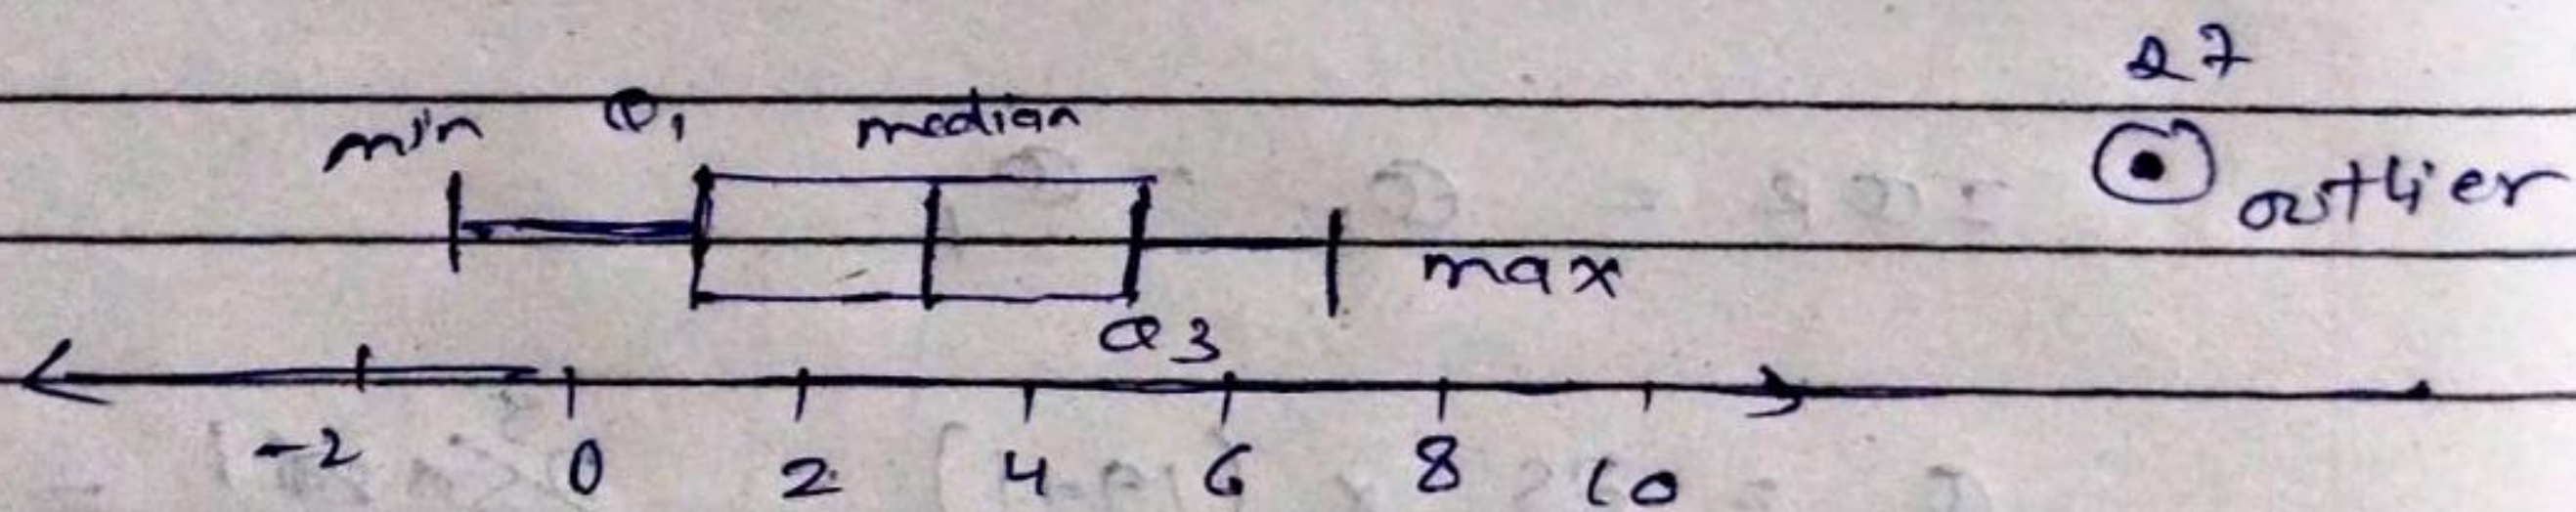 27
min Q1 median
outlier
max
Q3
-2 0 2 4 6 8 10